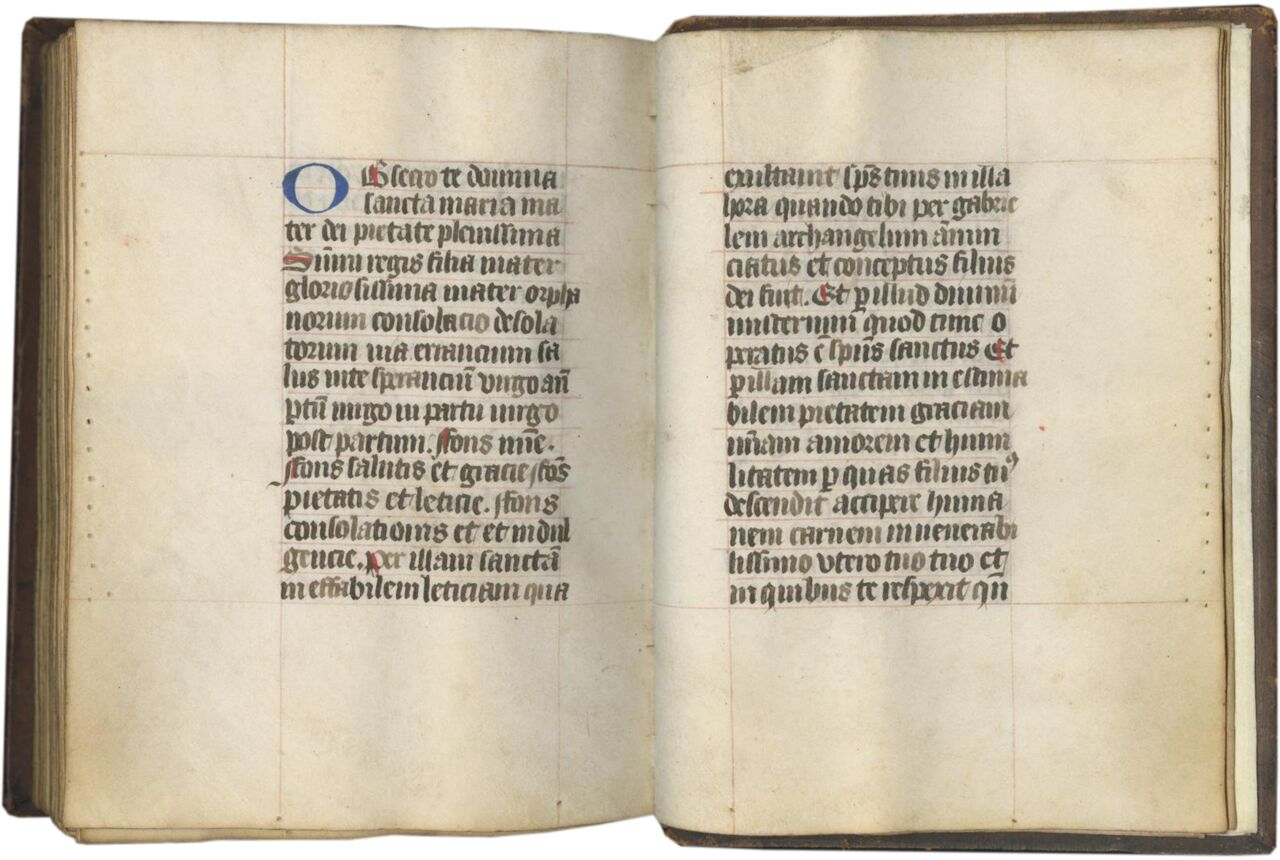 OBsecro te domina
sancta maria ma
ter dei pietate plenissima
Sūmi regis filia mater
gloriosissima mater orpha
norum consolacio desola
torum uia errancium sa
lus in te speranciū virgo an̄
p̄tū uirgo in partu uirgo
post partum. ffons mīe.
ffons salutis et gracie ffōs
pietatis et leticie. ffons
consolationis et et indul
gencie. Per illam sanctā
ineffabilem leticiam qua
exultauit sp̄s tuus in illa
hora quando tibi per gabrie
lem archangelum ānun
ciatus et conceptus filius
dei fuit. Et ꝑ illud diuinū
misterium quod tunc o
peratus ē spūs sanctus Et
ꝑ illam sanctam inestima
bilem pietatem graciam
mīam amorem et humi
litatem ꝑ quas filius tuꝰ
descendit accipere huma
nem carnem in uenerabi
lissimo vtero tuo tuo et
in quibus te respexit qn̄